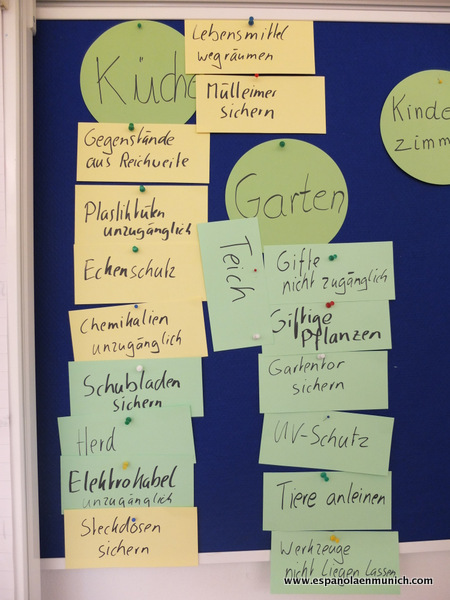 Küche
Lebensmittel
wegräumen
Mülleimer
sichern
Gegenstände
aus Reichweite
Plastiktüten
unzugänglich
Eckenschutz
Chemikalien
unzugänglich
Schubladen
sichern
Herd
Elektrokabel
unzugänglich
Steckdosen
sichern
Garten
Teich
Gifte
nicht zugänglich
Giftige
Pflanzen
Gartentor
sichern
UV-Schutz
Tiere anleinen
Werkzeuge
nicht liegen lassen
Kinde
zimm
www.espanolaenmunich.com